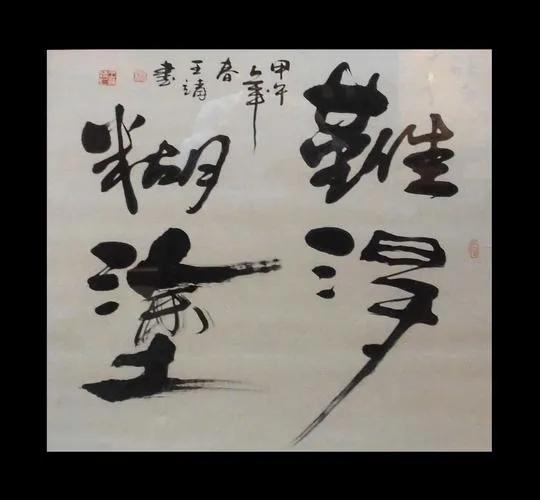 難得
糊塗
甲午年
春
王靖
書